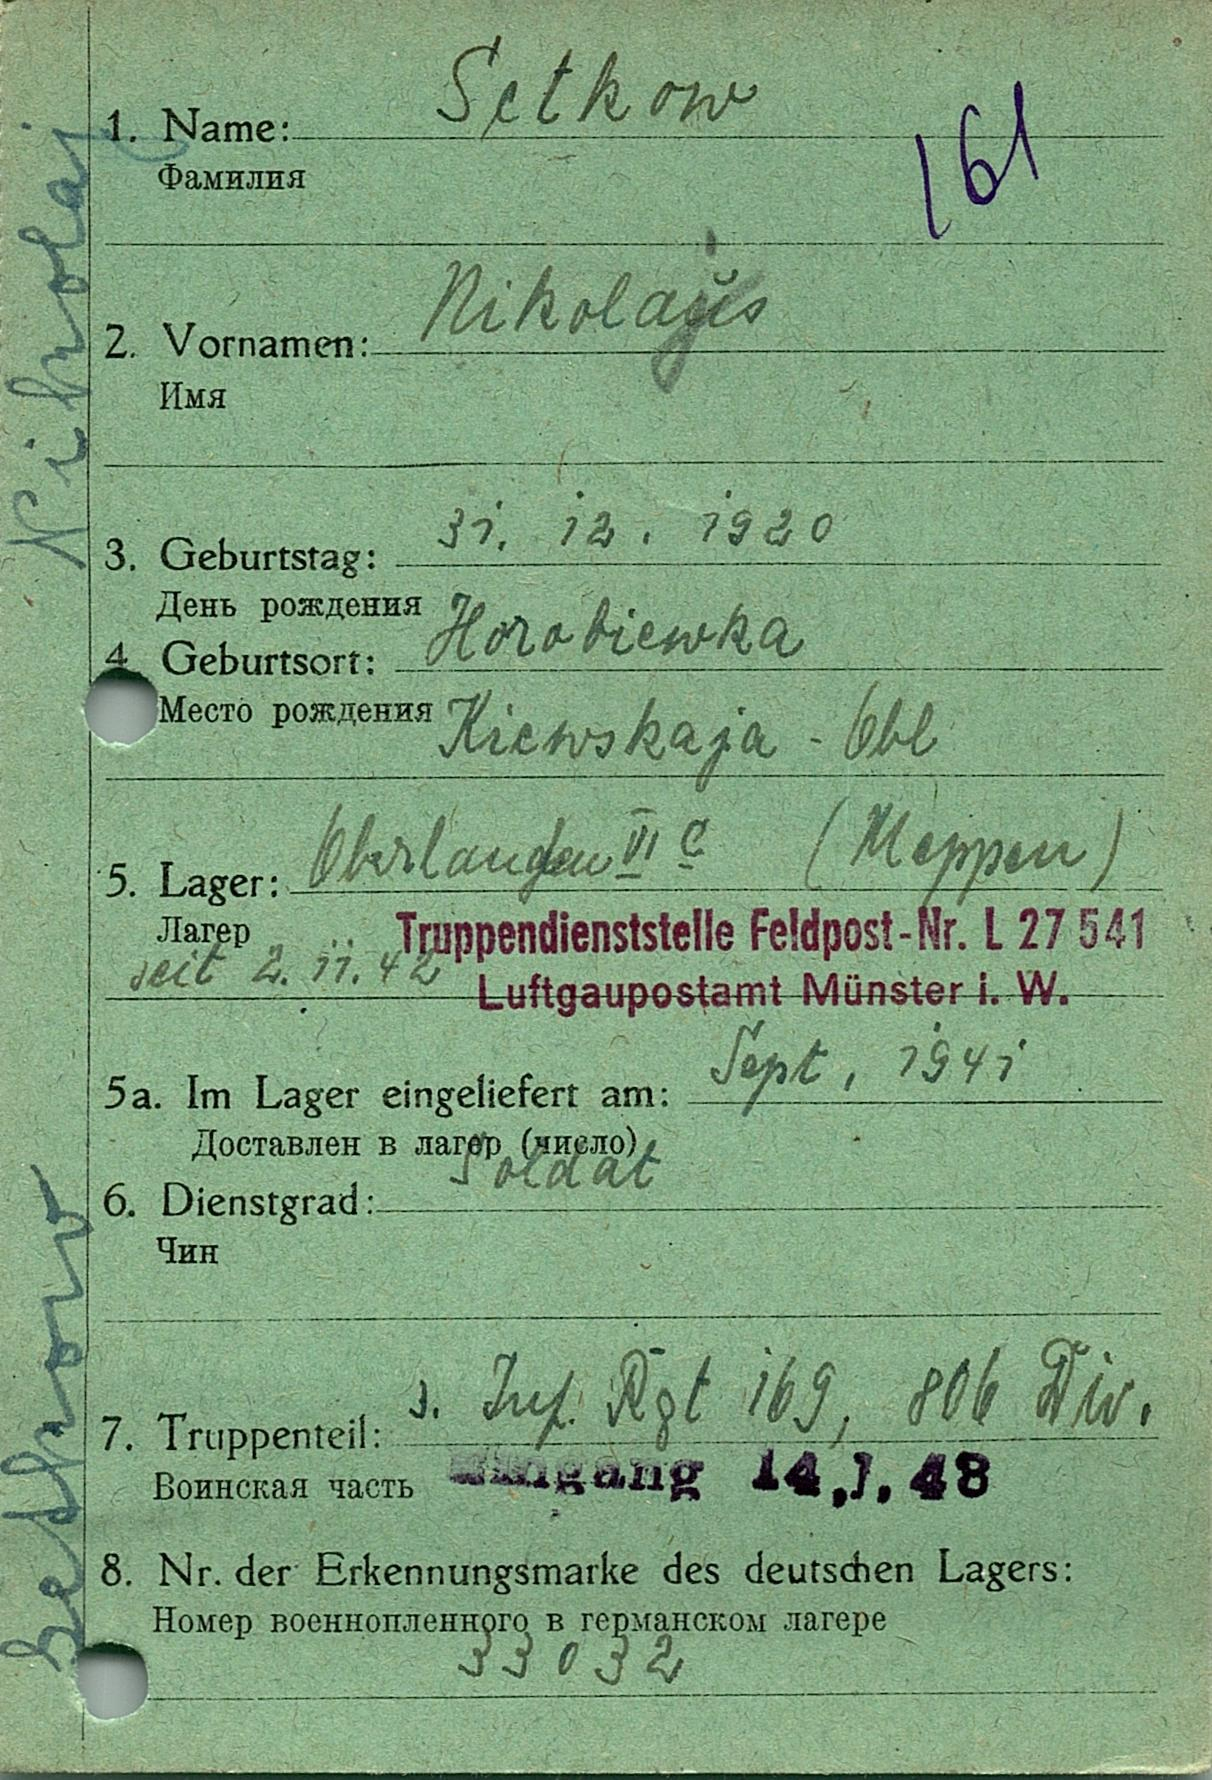 Setkow
1. Name:
161
Фамилия
Nikolaj
2. Vornamen:
Имя
31. 12. 1920
3. Geburtstag:
День рождения
Horobiewka
4 Geburtsort:
Место рождения
Kiewskaja - Obl
Oberlangen VI C (Meppen)
5. Lager:
Лагер
Truppendienststelle Feldpost-Nr. L 27 541
seit 2. 11. 42
Luftgaupostamt Münster i. W.
Sept, 1941
5a. Im Lager eingeliefert am:
Доставлен в лагер (число)
Soldat
6. Dienstgrad:
Чин
s. Inf. Rgt 169, 806 Div.
7. Truppenteil:
Воинская часть
Eingang 14. 1. 48
8. Nr. der Erkennungsmarke des deutschen Lagers:
Номер военнопленного в германском лагере
33032
Setkow Nikolaj